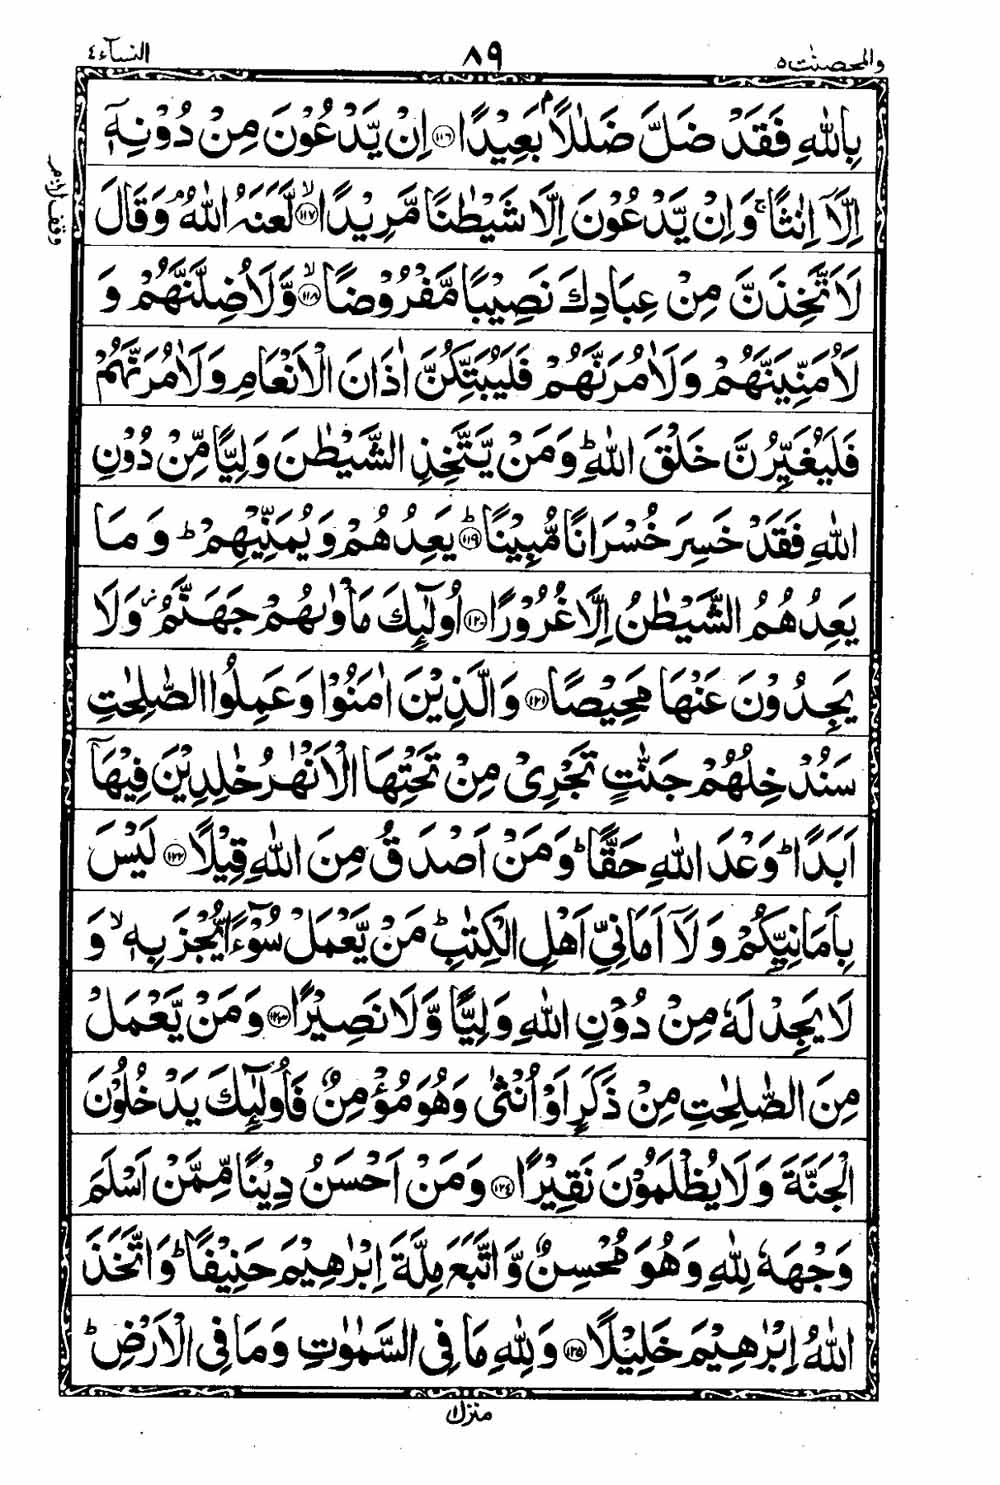 والمحصنٰت٥ ٨٩ النسآء٤
بِاللّٰهِ فَقَدْ ضَلَّ ضَلٰلًاۢ بَعِيْدًا ﴿١١٦﴾ اِنْ يَّدْعُوْنَ مِنْ دُوْنِهٖۤ
اِلَّاۤ اِنٰثًا ۚ وَاِنْ يَّدْعُوْنَ اِلَّا شَيْطٰنًا مَّرِيْدًا ﴿١١٧﴾ۙ لَّعَنَهُ اللّٰهُ ۘ وَقَالَ
وقف لازم
لَاَتَّخِذَنَّ مِنْ عِبَادِكَ نَصِيْبًا مَّفْرُوْضًا ﴿١١٨﴾ۙ وَّلَاُضِلَّنَّهُمْ وَ
لَاُمَنِّيَنَّهُمْ وَلَاٰمُرَنَّهُمْ فَلَيُبَتِّكُنَّ اٰذَانَ الْاَنْعَامِ وَلَاٰمُرَنَّهُمْ
فَلَيُغَيِّرُنَّ خَلْقَ اللّٰهِ ؕ وَمَنْ يَّتَّخِذِ الشَّيْطٰنَ وَلِيًّا مِّنْ دُوْنِ
اللّٰهِ فَقَدْ خَسِرَ خُسْرَانًا مُّبِيْنًا ﴿١١٩﴾ؕ يَعِدُهُمْ وَيُمَنِّيْهِمْ ؕ وَمَا
يَعِدُهُمُ الشَّيْطٰنُ اِلَّا غُرُوْرًا ﴿١٢٠﴾ اُولٰٓئِكَ مَاْوٰىهُمْ جَهَنَّمُ ؗ وَلَا
يَجِدُوْنَ عَنْهَا مَحِيْصًا ﴿١٢١﴾ وَالَّذِيْنَ اٰمَنُوْا وَعَمِلُوا الصّٰلِحٰتِ
سَنُدْخِلُهُمْ جَنّٰتٍ تَجْرِيْ مِنْ تَحْتِهَا الْاَنْهٰرُ خٰلِدِيْنَ فِيْهَاۤ
اَبَدًا ؕ وَعْدَ اللّٰهِ حَقًّا ؕ وَمَنْ اَصْدَقُ مِنَ اللّٰهِ قِيْلًا ﴿١٢٢﴾ لَيْسَ
بِاَمَانِيِّكُمْ وَلَاۤ اَمَانِيِّ اَهْلِ الْكِتٰبِ ؕ مَنْ يَّعْمَلْ سُوْٓءًا يُّجْزَ بِهٖ ۙ وَ
لَا يَجِدْ لَهٗ مِنْ دُوْنِ اللّٰهِ وَلِيًّا وَّلَا نَصِيْرًا ﴿١٢٣﴾ وَمَنْ يَّعْمَلْ
مِنَ الصّٰلِحٰتِ مِنْ ذَكَرٍ اَوْ اُنْثٰى وَهُوَ مُؤْمِنٌ فَاُولٰٓئِكَ يَدْخُلُوْنَ
الْجَنَّةَ وَلَا يُظْلَمُوْنَ نَقِيْرًا ﴿١٢٤﴾ وَمَنْ اَحْسَنُ دِيْنًا مِّمَّنْ اَسْلَمَ
وَجْهَهٗ لِلّٰهِ وَهُوَ مُحْسِنٌ وَّاتَّبَعَ مِلَّةَ اِبْرٰهِيْمَ حَنِيْفًا ؕ وَاتَّخَذَ
اللّٰهُ اِبْرٰهِيْمَ خَلِيْلًا ﴿١٢٥﴾ وَلِلّٰهِ مَا فِى السَّمٰوٰتِ وَمَا فِى الْاَرْضِ ؕ
منزل ١